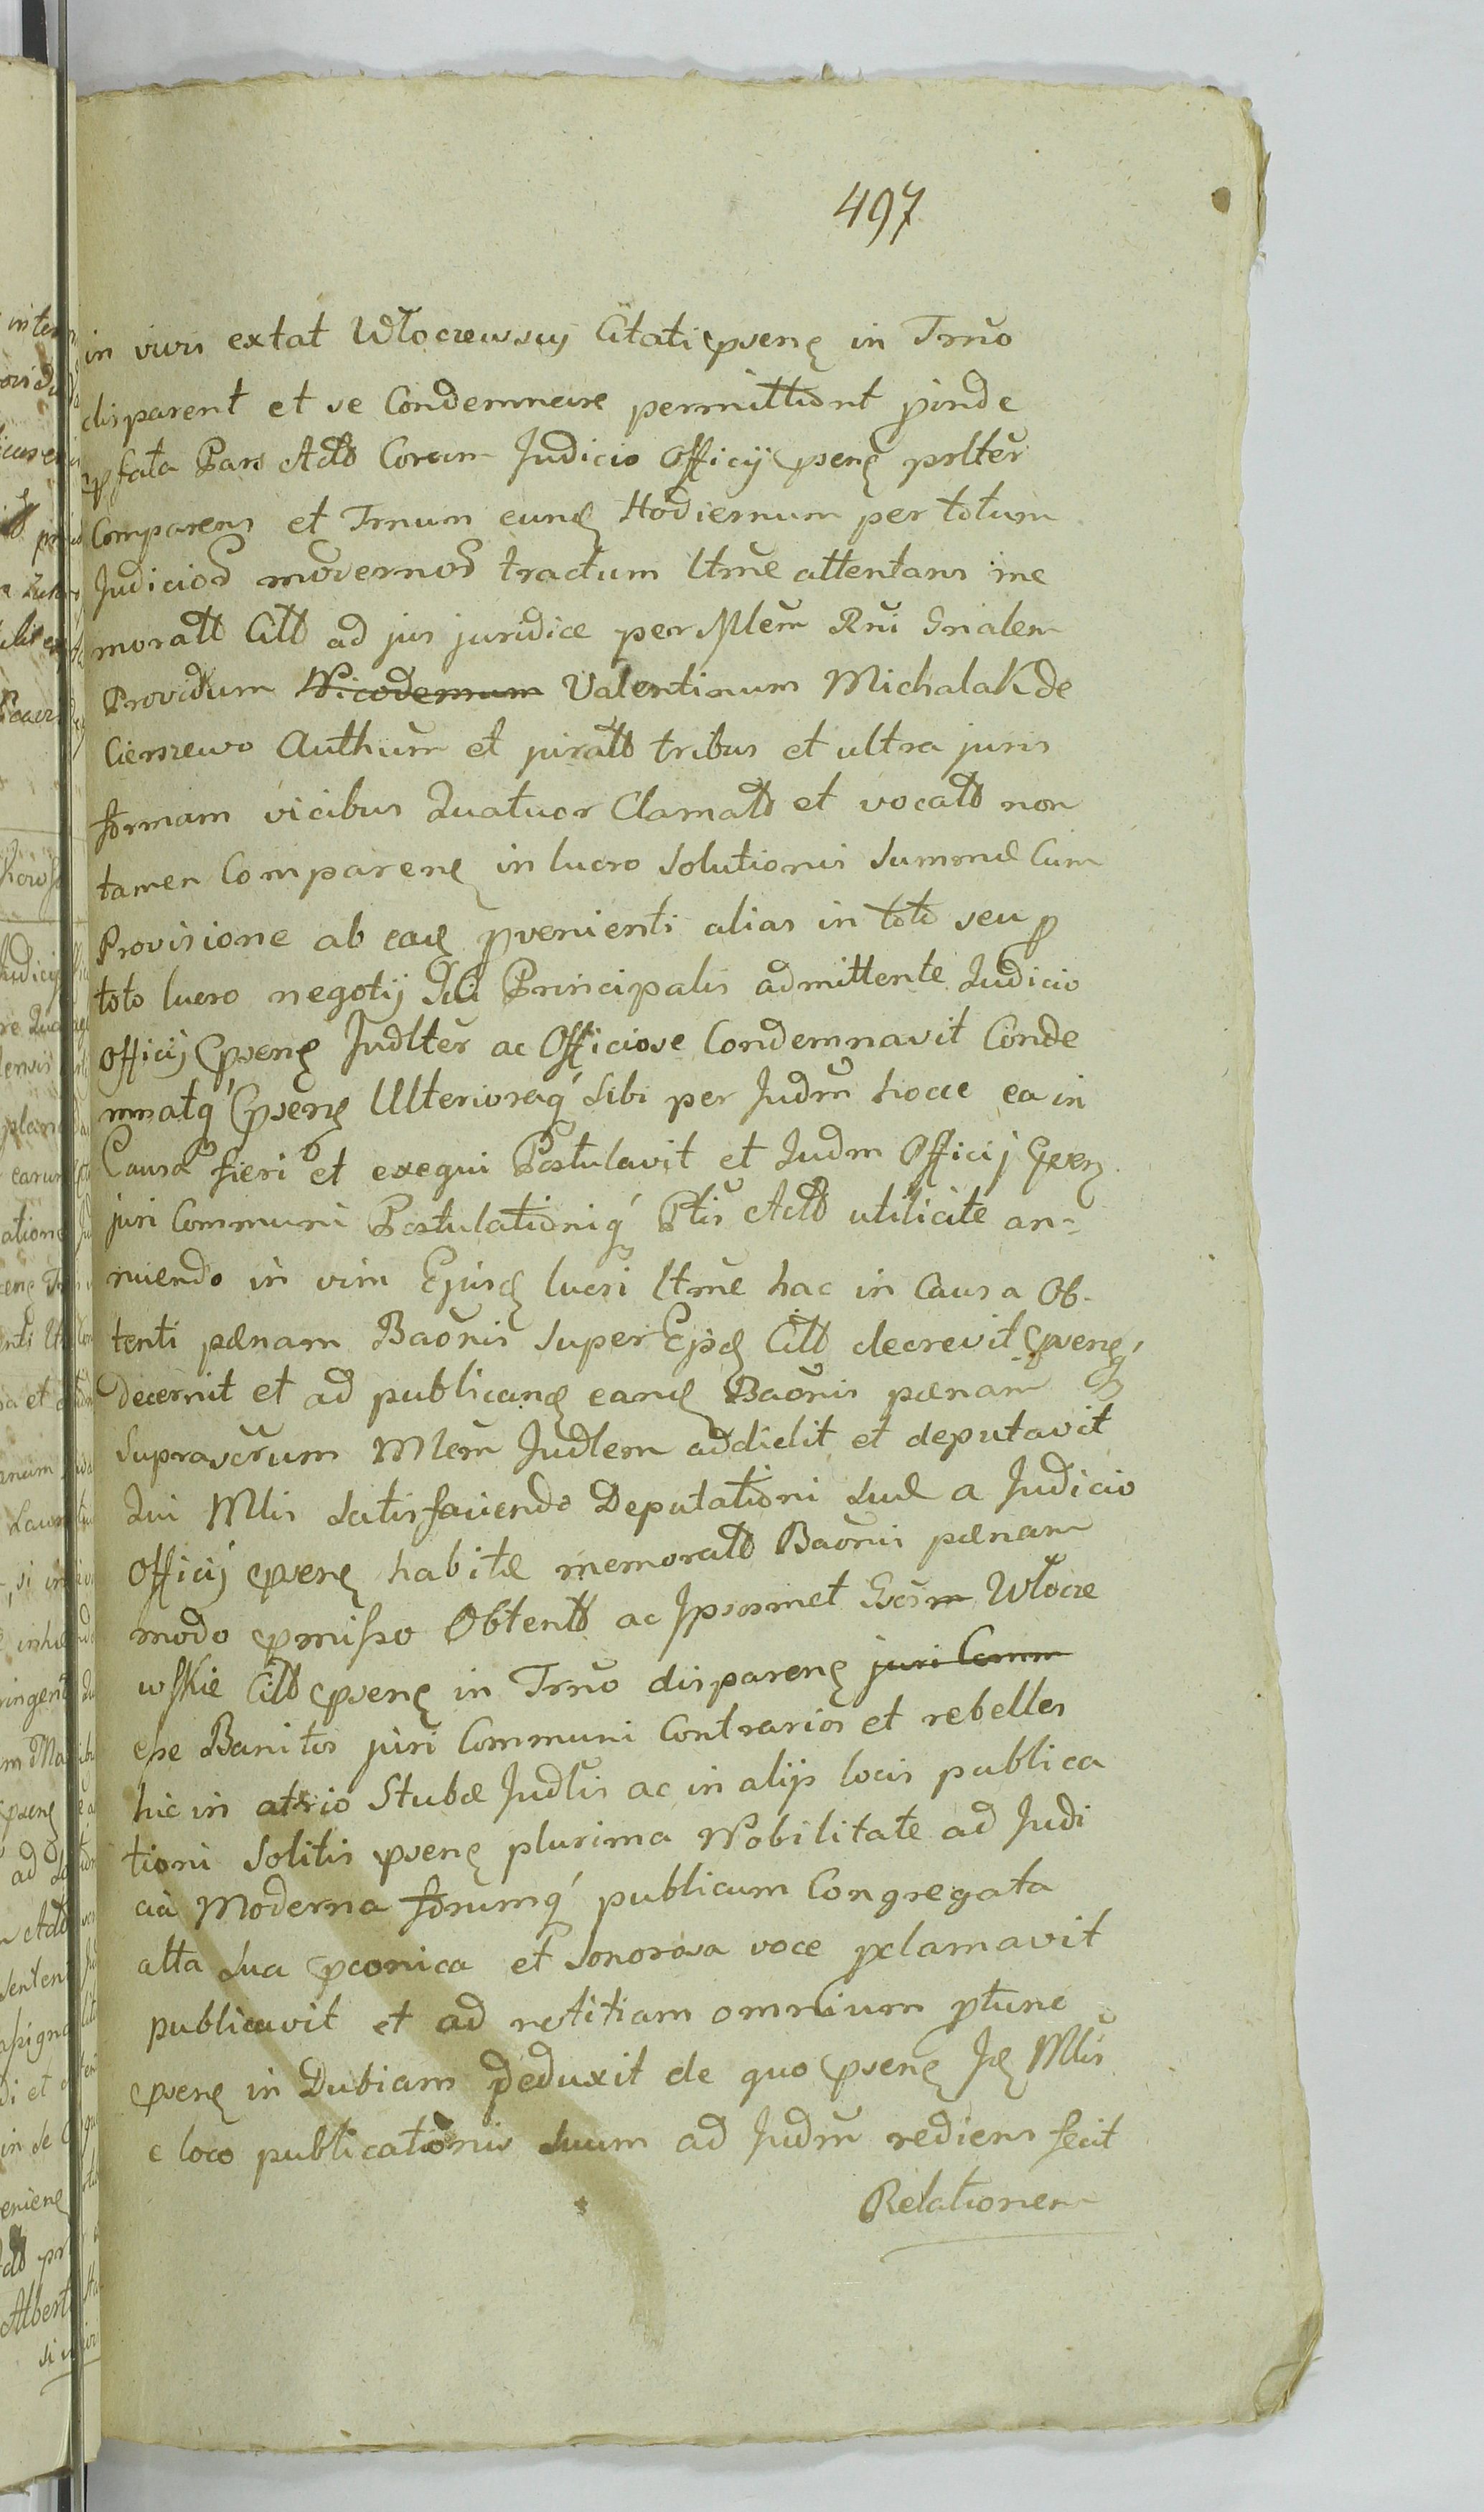 497
in vivis extat Włoczewscy Citati pseneɀ in Trno
disparent et se Condemnare permittunt pinde
pfata Pars Actt Coram Judicio Officij pseneɀ psltēr
Comparens et Trnum eundɀ Hodiernum per totum
Judicioꝝ modernoꝝ tractum ltme attentans me
moratt Citt ad jus juridice per Mlem Rni Gnalem
Providum Nicodemum Valentinum Michalak de
Ciemzewo Authum et juratt tribus et ultra juris
formam vicibus Quatuor Clamatt et vocatt non
tamen Compareneɀ in lucro Solutionis Summæ Cum
Provisione ab eadɀ pvenienti alias in toto seu p
toto lucro negotij Sui Principalis admittente Judicio
Officij pseneɀ Judltēr ac Officiose Condemnavit Conde
mnatq́ pseneɀ Ulterioraq́ Sibi per Judm̄ hocce ea in
Causa fieri et exequi Postulavit et Judm Officij pseneɀ
juri Communi Postulationiq́ Ptis Actt utilicite an=
nuendo in vim Ejusdɀ lucri ltme hac in Causa Ob-
tenti pænam Baonis Super Ejsdɀ Citt decrevit pseneɀq́
decernit et ad publicandɀ eandɀ Baonis pænam
Suprascrum Mlem Judlem addidit et deputavit
Qui Mlis Satisfaciendo Deputationi Suæ a Judicio
Officij pseneɀ habitæ memoratt Baonis pænam
modo pmisso Obtentt ac Ipsosmet Włocze
wskie Citt pseneɀ in Trno dispareneɀ juri Comm
esse Banitos juri Communi Contrarios et rebelles
hic in atrio Stubæ Judlis ac in alijs locis publica
tioni Solitis pseneɀ plurima Nobilitate ad Judi
cia Moderna forumq́ publicum Congregata
alta Sua pconica et Sonorosa voce pclamavit
publicavit et ad notitiam omnium ptunc
pseneɀ in Dubiam deduxit de quo pseneɀ Idɀ Mlis
e loco publicationis Suum ad Judm̄ rediens fecit
Relationem